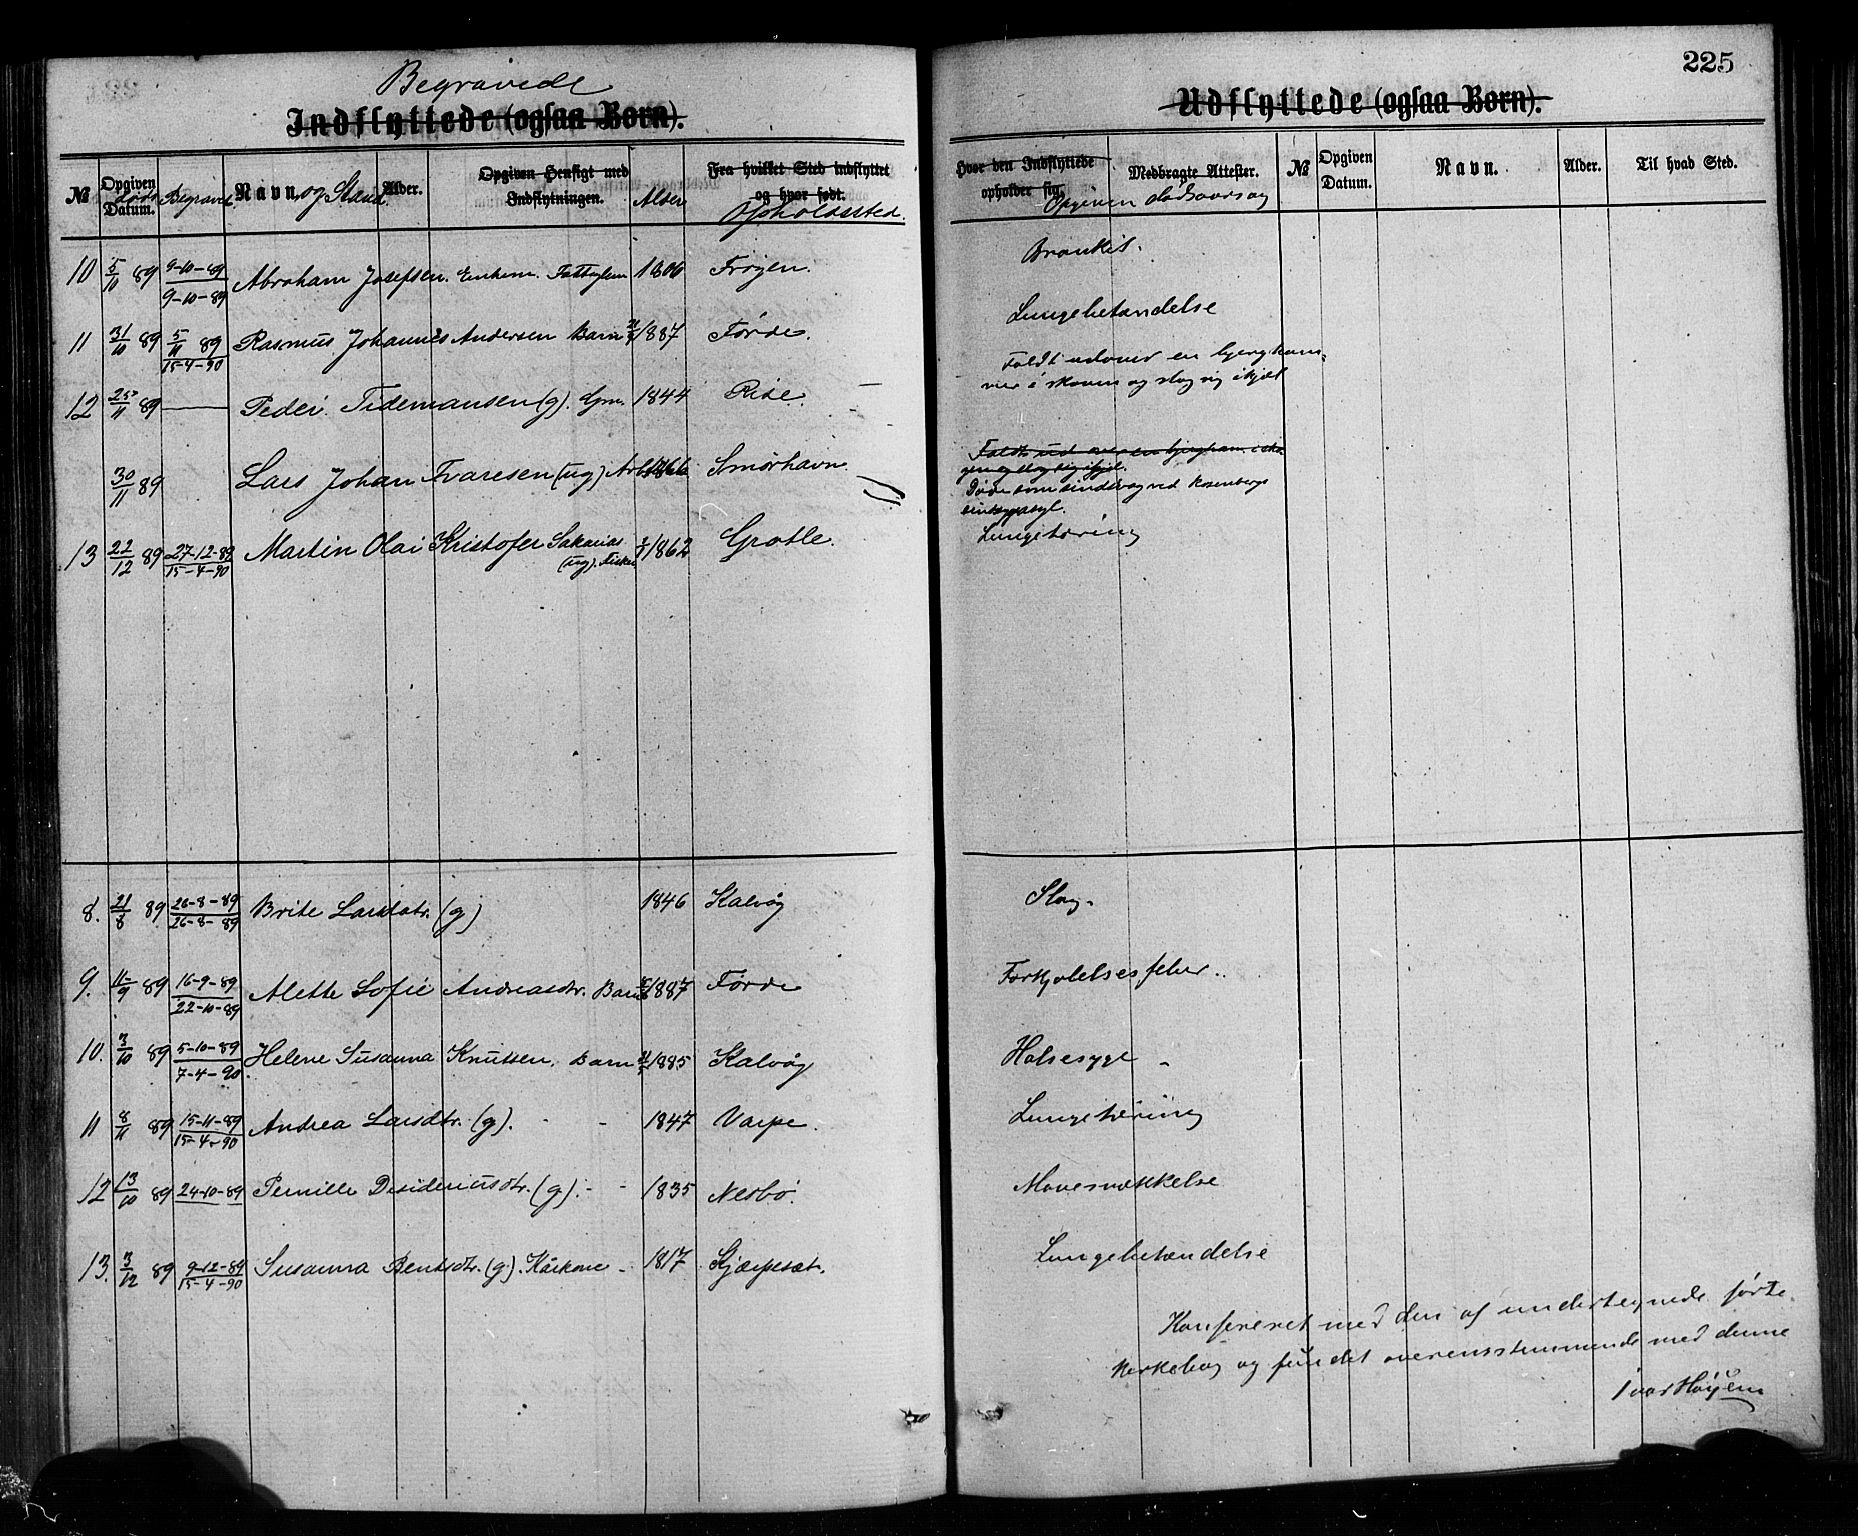 225
Begravede
Indflyttede (ogsaa Børn).
Udflyttede (ogsaa Børn).
№ Opgiven Datum. døds Begravet Navn. og Stand Alder. Opgiven Hensigt med Indflytningen. Alder Fra hvilket Sted indflyttet og hvor født. Opholdssted.
Hvor den Indflyttede opholder sig. Medbragte Attester. Opgiven dødsaarsag № Opgiven Datum. Navn. Alder. Til hvad Sted.
10 5/10 89 9-10-89 9-10-89 Abraham Josefsen. Enkem. 1806 Frøyen. Bronkit.
11 31/10 89 5/11 89 15-4-90 Rasmus Johannes Andersen Barn 1887 Førde. Lungebetændelse
12 25/11 89 — Peder Tidemansen (g). Gm. 1844 Rise. — Faldt udover en bjergkam-
mer i skoven og slog sig ihjæl
30/11 89 Lars Johan Ivaresen (ug) Arb. 1866 Smørhavn Faldt ud over en bjergkam. i sko
gen og slog sig ihjel.
Døde som sindssvag ved Rosenbergs
sindsygeasyl.
13 22/12 89 27-12-89 15-4-90 Martin Olai Kristofer Sakarias (ug). Fisker 1862 Grotle. Lungetæring
8. 21/8 89 26-8-89 26-8-89 Brite Larsdotr. (g) 1846 Kalvåg Slag.
9. 11/9 89 16-9-89 22-10-89 Alette Sofie Andreasdtr. Barn 1887 Førde Forkjølelsesfeber.
10. 3/10 89 5-10-89 7-4-90 Helene Susanna Knutsen. Barn 1885 Kalvåg Halsesyge -
11 8/11 89 15-11-89 15-4-90 Andrea Larsdtr. (g). - - 1847 Varpe. Lungetæring
12 13/10 89 24-10-89 Pernille Desideriusdtr. (g). - - 1835 Nesbø. Mavesvækkelse
13. 3/12 89 9-12-89 15-4-90 Susanna Bentsdtr. (g). Kårkone - 1817 Gjærpesæt. Lungebetændelse
Konfereret med den af undertegnede førte
kirkebog og fundet overensstemmende med denne
Ivar Høyem